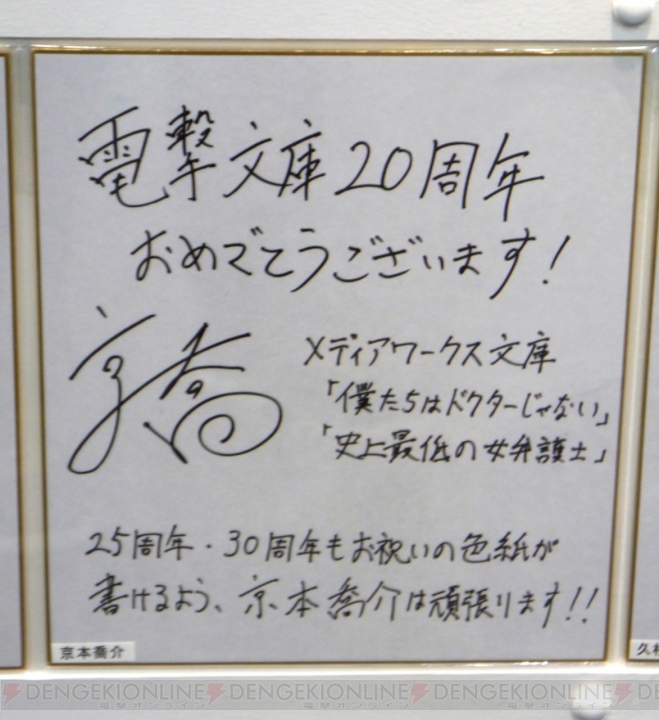 電撃文庫20周年
おめでとうございます!
京喬
メディアワークス文庫
「僕たちはドクターじゃない」
「史上最低の女弁護士」
25周年・30周年もお祝いの色紙が
書けるよう、京本喬介は頑張ります!!
京本喬介
久
DENGEKIONLINE
電撃オンライン
DENGEKIONLINE
電撃オンライン
DENGEKIONLINE
電撃オンライン